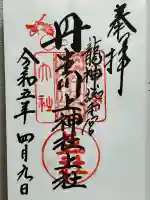 奉拝
龍神総本宮
丹生川上神社上社
令和五年四月九日